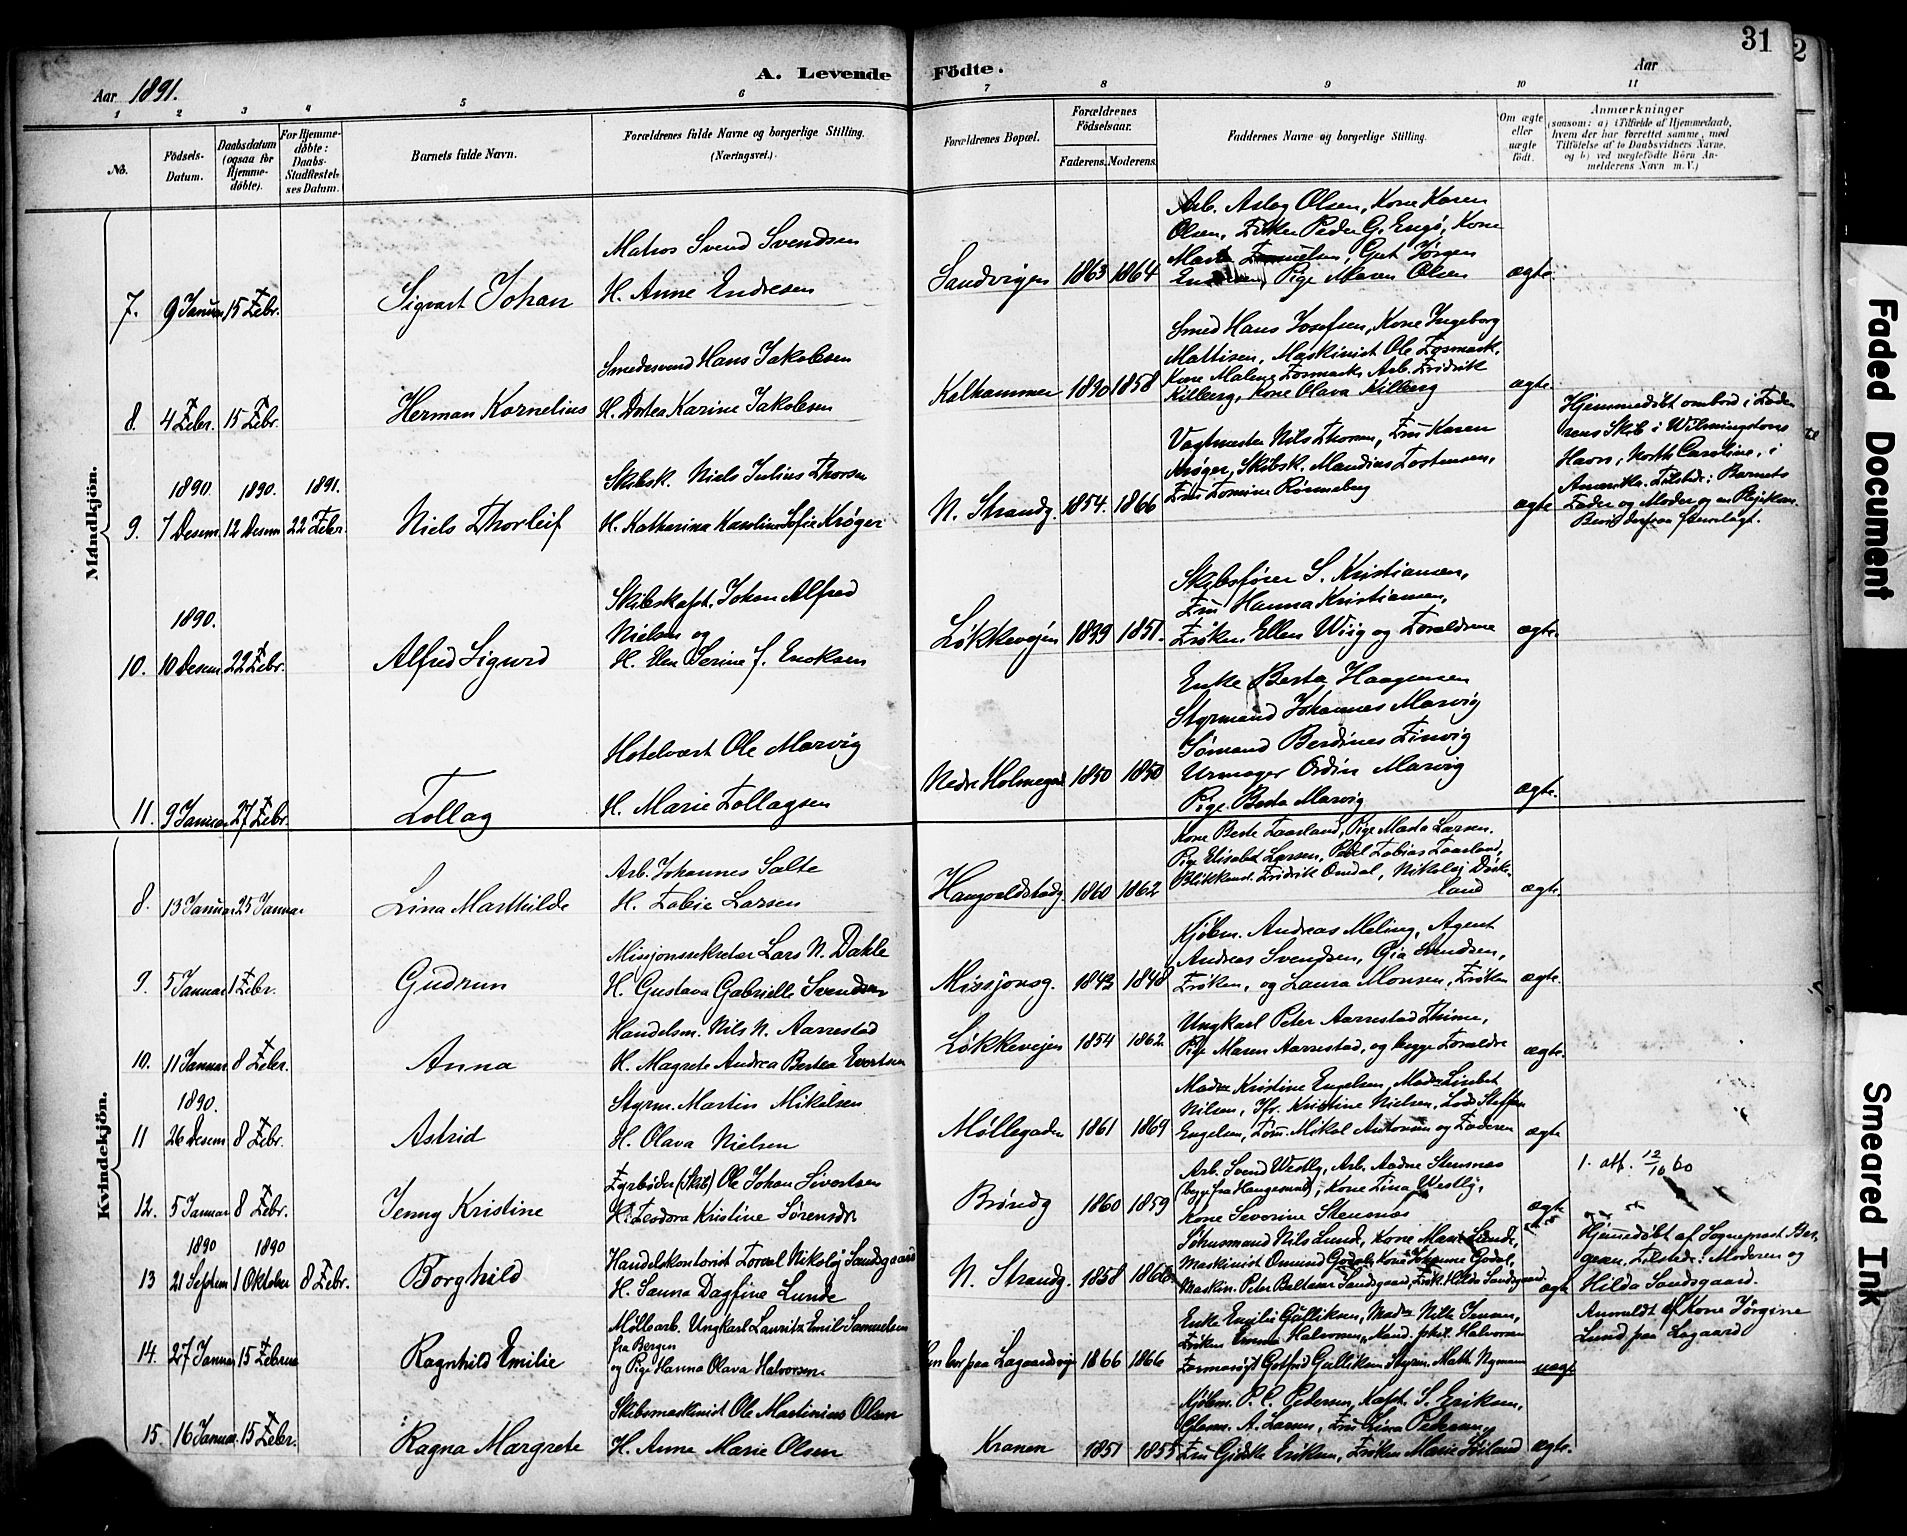 31
2
A. Levende Födte.
Aar 1891.
Aar
1 2 3 4 5 6 7 8 9 10 11
No.
Födsels-
Datum.
Daabsdatum
(ogsaa for
Hjemme-
döbte).
For Hjemme-
döbte:
Daabs-
Stadfæstel-
ses Datum.
Barnets fulde Navn.
Forældrenes fulde Navne og borgerlige Stilling.
(Næringsvei.)
Forældrenes Bopæl.
Forældrenes
Födselsaar.
Faderens. Moderens.
Faddernes Navne og borgerlige Stilling.
Om ægte
eller
uægte
födt.
Anmærkninger
(saasom: a) i Tilfælde af Hjemmedaab,
hvem der har forrettet samme, med
Tilföielse af to Daabsvidners Navne,
og b) ved uægtefödte Börn An-
melderens Navn m. V.)
Mandkjön.
7. 9 Januar 15 Febr. Sigvart Johan
Matros Svend Svendsen
H. Anne Endresen
Sandvigen 1863 1864
Arb. Aslag Olsen, Kone Karen
Olsen, Peder G. Engø, Kone
Gut Jørgen
Pige Maren Olsen
ægte
8. 4 Febr. 15 Febr. Herman Kornelius
Smedesvend Hans Jakobsen
H. Dotea Karine Jakobsen
Kalhammer 1858
Smed Hans Josefsen, Kone Ingeborg
Mattisen, Maskinist Ole Fosmark,
Kone Malene Fosmark, Arb. Fridrik
Kilberg, Kone Olava Kilberg
ægte
1890. 1890. 1891.
9. 7 Desem. 12 Desem 22 Febr. Niels Thorleif
Skibsk. Niels Julius Thorsen
H. Katharina Karoline Sofie Krøger
N. Strandg. 1854. 1866
Vagtmester Nils Thorsen, Fru Karen
Krøger, Skibsk. Mandius Tostensen,
Fru Tomine Rønneberg
ægte
Hjemmedöbt ombord i Fade
rens Skib i Wilmingtons
Havn, North Caroline, i
Amerika. Tilstede: Barnets
Fader og Moder og en Plejekone.
Bevis derfor fremlagt.
1890.
10. 10 Desem. 22 Febr. Alfred Sigurd
Skibskapt. Johan Alfred
Nielsen og
H. Elen Serine f. Enoksen
Løkkevejen 1851.
Skibsfører S. Kristiansen,
Fru Hanna Kristiansen,
Frøken Ellen Wiig og Forældrene
ægte.
11. 9 Januar 27 Febr. Tollag
Hotelvært Ole Marvig
H. Marie Tollagsen
Nedre Holmegade 1850 1850
Enke Berta Haagensen
Styrmand Johannes Marvig
Sømand Berdines Finvig
Urmager Ordin Marvig
Pige Berta Marvig
ægte.
Kvindekjön.
8. 13 Januar 25 Januar Lina Marthilde
Arb. Johannes Salte
H. Tobie Larsen
Haugvaldstadg. 1860 1862
Kone Berte Taarland, Pige Marta Larsen.
Pige Elisabet Larsen, Tobias Taarland,
Blikkensl. Fridrik Omdal, Nikolaj
land
ægte.
9. 5 Januar 1 Febr. Gudrun
Missjonssekretær Lars N. Dahle
H. Gustava Gabrielle Svendsen
Missjonsg. 1843 1848
Kjøbm. Andreas Meling, Agent
Andreas Svendsen, Gia Svendsen,
Frøken, og Laura Monsen, Frøken
ægte.
10. 11 Januar 8 Febr. Anna
Handelsm. Nils N. Aarrestad
H. Magrete Andrea Bertea Evertsen
Løkkevejen 1854 1862
Ungkarl Peter Aarrestad Thime,
Pige Maren Aarrestad, og begge Forældre
ægte.
1890.
11 26 Desem 8 Febr. Astrid
Styrm. Martin Mikalsen
H. Olava Nielsen
Møllegaden 1861 1869
Madm Kristine Engelsen, Madm Lisbet
Nilsen, Jfr. Kristine Nielsen, Lods Steffen
Engelsen, Tøm. Mikal Antonsen og Faderen
ægte
12. 5 Januar 8 Febr. Jenny Kristine
Fyrbøder (Skib) Ole Johan Sivertsen
H. Teodora Kristine Sørensdr
Brøndg 1860 1859
Arb. Svend Westby, Arb. Aadne Stensnes
(begge fra Haugesund), Kone Lina Westby,
Kone Severine Stensnes
ægte
1. att. 12/10 60
1890 1890
13 21 Septem 1 Oktober 8 Febr. Borghild
Handelskontorist Torval Nikolaj Sandsgaard
H. Sanna Dagfine Lunde
N. Strandg. 1858 1866
Skhusmand Nils Lund, Kone Mari Lunde,
Maskinist Omund Godal, Kone Johanne Godal,
Maskin. Peter Baltazar Sandsgaard, Frøk. Hilda Sandsgaard
ægte
Hjemmedöbt af Sogneprest Ber-
gesen. Tilstede: Moderen og
Hilda Sandsgaard.
14. 27 Januar 15 Februar Ragnhild Emilie
Møllearb. Ungkarl Lauritz Emil Samuelsen
fra Bergen
og Pige Hanna Olava Halvorsen.
bor paa Lagaardsvejen 1866 1866
Enke Emilie Gulliksen, Madm Nille Jensen,
Frøken Emma Halvorsen, Kand. phil. Halvorsen
Gotfrid Gulliksen Styrm. Math. Nyman
uægte
Anmeldt af Kone Jørgine
Lund paa Lagaard
15. 16 Januar. 15 Febr. Ragna Margrete
Skibsmaskinist Ole Martinius Olsen
H. Anne Marie Olsen
Kranen 1851 1855
Kjøbm. P. C. Pedersen, Kapt. S. Eriksen,
A. Larsen, Fru Lina Pedersen,
Fru Gidske Eriksen, Frøken Marie Søiland
ægte.
Faded Document
Smeared Ink